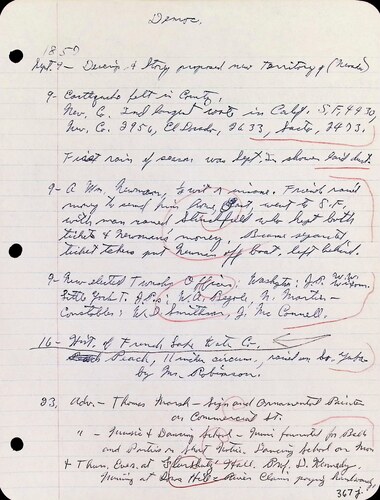 Democ.
1857
Sept. 9 - Descrip. & Story proposed new Territory of (Nevada)
9 - Earthquake felt in County,
Nev. C. 2nd largest vote in Calif. S.F. 9930,
Nev. C. 2956, El Dorado, 2633, Sacto, 2473.
First rain of season was Sept. In shower laid dust.
9 - A Wm. Newman, went & mines. Friends raised
money to send him home East, went to S.F.
with man named Stuchfield who kept both
tickets & Newman's money. Became separated
ticket takers put Newman off boat, left behind.
9 - New elected Township Officers, Washgtn: J.P.
Little York T. J.Ps: W.A. Begole, N. Martin -
Constables: W. D. Smithson, J. McConnell.
16 - Hist. of French Lake Co.
Peach, 11 inches circum., raised on So. Yuba
by Mr. Robinson.
23, Adv. - Thomas Marsh - Sign and Ornamental Painter
on Commercial St.
" - Music & Dancing School - Music furnished for Balls
and Parties on Short Notice. Dancing School on Mon
& Thurs. Eves. at Hall. Prof. D. Kennedy.
Mining at Hill - Claims paying handsomely,
367 j